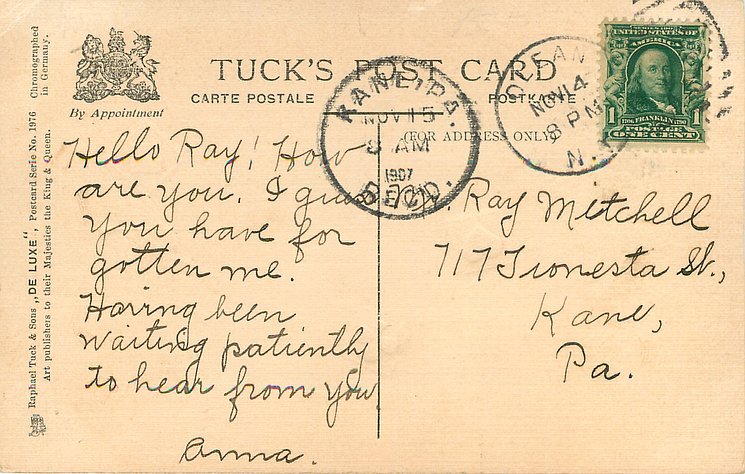 TUCK'S POST CARD
CARTE POSTALE
POSTKARTE
(FOR ADDRESS ONLY)
By Appointment
Raphael Tuck & Sons „DE LUXE", Postcard Serie No. 1976 Chromographed in Germany.
Art publishers to their Majesties the King & Queen.
KANE, PA.
NOV 15
8 AM
1907
REC'D.
OLEAN
NOV 14
8 PM
N.Y.
SERIES 1902
UNITED STATES OF
AMERICA
1706 FRANKLIN 1790
1 1
POSTAGE
ONE CENT
Hello Ray! How
are you. I guess
you have for
gotten me.
Having been
waiting patiently
to hear from you.
Anna.
Mr. Ray Mitchell
717 Tionesta St.,
Kane,
Pa.